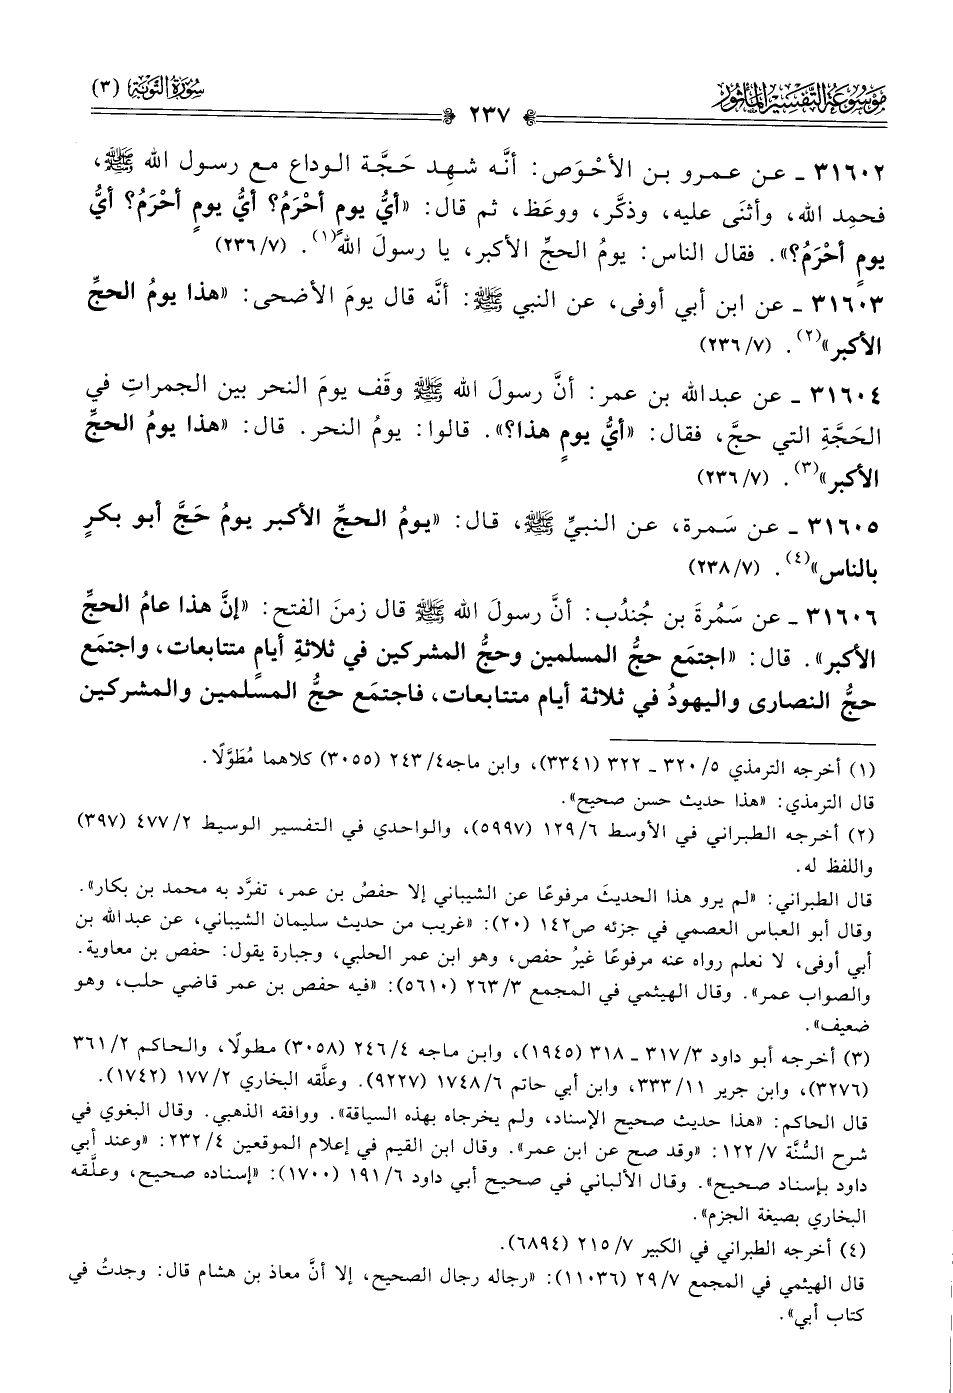 مَوْسُوعَة التَّفْسِير المَأْثُور
٢٣٧
سُورَةُ التَّوْبَة (٣)
٣١٦٠٢ ـ عن عمرو بن الأَحْوَص: أنَّه شهِد حَجَّة الوداع مع رسول الله ﷺ،
فحمِد الله، وأثنَى عليه، وذكَّر، ووعَظ، ثم قال: «أيُّ يومٍ أحْرَمُ؟ أيُّ يومٍ أحْرَمُ؟ أيُّ
يومٍ أحْرَمُ؟». فقال الناس: يومُ الحجِّ الأكبر، يا رسولَ الله(١). (٢٣٦/٧)
٣١٦٠٣ ـ عن ابن أبي أوفى، عن النبي ﷺ: أنَّه قال يومَ الأضحى: «هذا يومُ الحجِّ
الأكبر»(٢). (٢٣٦/٧)
٣١٦٠٤ ـ عن عبدالله بن عمر: أنَّ رسولَ الله ﷺ وقَف يومَ النحر بين الجمراتِ في
الحَجَّةِ التي حجَّ، فقال: «أيُّ يومٍ هذا؟». قالوا: يومُ النحر. قال: «هذا يومُ الحجِّ
الأكبر»(٣). (٢٣٦/٧)
٣١٦٠٥ ـ عن سَمرة، عن النبيِّ ﷺ، قال: «يومُ الحجِّ الأكبر يومُ حَجَّ أبو بكرٍ
بالناس»(٤). (٢٣٨/٧)
٣١٦٠٦ ـ عن سَمُرةَ بن جُندُب: أنَّ رسولَ الله ﷺ قال زمنَ الفتح: «إنَّ هذا عامُ الحجِّ
الأكبر». قال: «اجتمَع حجُّ المسلمين وحجُّ المشركين في ثلاثةِ أيامٍ متتابعات، واجتمَع
حجُّ النصارى واليهودُ في ثلاثة أيام متتابعات، فاجتمَع حجُّ المسلمين والمشركين
(١) أخرجه الترمذي ٥/ ٣٢٠ ـ ٣٢٢ (٣٣٤١)، وابن ماجه٤/ ٢٤٣ (٣٠٥٥) كلاهما مُطَوَّلًا.
قال الترمذي: «هذا حديث حسن صحيح».
(٢) أخرجه الطبراني في الأوسط ٦/ ١٢٩ (٥٩٩٧)، والواحدي في التفسير الوسيط ٢/ ٤٧٧ (٣٩٧)
واللفظ له.
قال الطبراني: «لم يرو هذا الحديثَ مرفوعًا عن الشيباني إلا حفصُ بن عمر، تفرَّد به محمد بن بكار».
وقال أبو العباس العصمي في جزئه ص١٤٢ (٢٠): «غريب من حديث سليمان الشيباني، عن عبدالله بن
أبي أوفى، لا نعلم رواه عنه مرفوعًا غيرُ حفص، وهو ابن عمر الحلبي، وجبارة يقول: حفص بن معاوية.
والصواب عمر». وقال الهيثمي في المجمع ٣/ ٢٦٣ (٥٦١٠): «فيه حفص بن عمر قاضي حلب، وهو
ضعيف».
(٣) أخرجه أبو داود ٣/ ٣١٧ ـ ٣١٨ (١٩٤٥)، وابن ماجه ٤/ ٢٤٦ (٣٠٥٨) مطولًا، والحاكم ٢/ ٣٦١
(٣٢٧٦)، وابن جرير ١١/ ٣٣٣، وابن أبي حاتم ٦/ ١٧٤٨ (٩٢٢٧). وعلَّقه البخاري ٢/ ١٧٧ (١٧٤٢).
قال الحاكم: «هذا حديث صحيح الإسناد، ولم يخرجاه بهذه السياقة». ووافقه الذهبي. وقال البغوي في
شرح السُّنَّة ٧/ ١٢٢: «وقد صح عن ابن عمر». وقال ابن القيم في إعلام الموقعين ٤/ ٢٣٢: «وعند أبي
داود بإسناد صحيح». وقال الألباني في صحيح أبي داود ٦/ ١٩١ (١٧٠٠): «إسناده صحيح، وعلَّقه
البخاري بصيغة الجزم».
(٤) أخرجه الطبراني في الكبير ٧/ ٢١٥ (٦٨٩٤).
قال الهيثمي في المجمع ٧/ ٢٩ (١١٠٣٦): «رجاله رجال الصحيح، إلا أنَّ معاذ بن هشام قال: وجدتُ في
كتاب أبي».